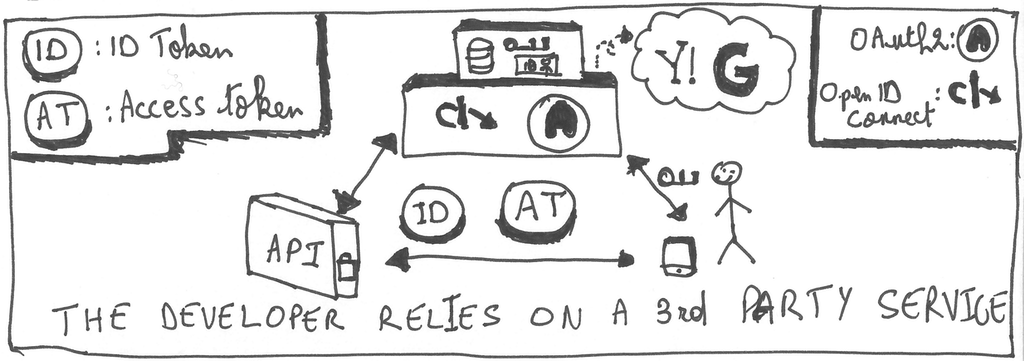 ID : ID Token
AT : Access token
Y! G
OAuth2:
OpenID
Connect :
API
ID
AT
THE DEVELOPER RELIES ON A 3rd PARTY SERVICE